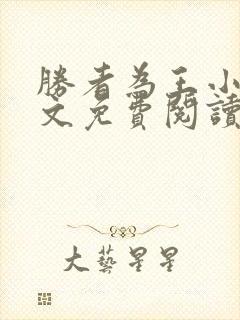 勝者為王小
文免費閱讀
大藝星星